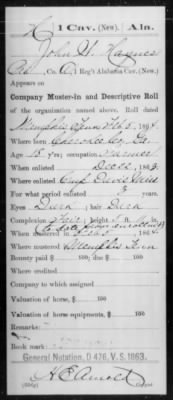 H | 1 Cav. (New). | Ala.
John H. Haynes
Co. A, Reg't Alabama Cav. (New.)
Appears on
Company Muster-In and Descriptive Roll
of the organization named above. Roll dated
Memphis Tenn Feb 5, 1864
Where born Cherokee Co. Ga.
Age 18 y'rs; occupation Farmer
When enlisted Dec 2, 1863.
Where enlisted Camp Davies Miss
For what period enlisted 3 years.
Eyes Dark ; hair Dark
Complexion Fair ; height 5 ft. in.
(to date from enrollment)
When mustered in Feb 5, 1864.
Where mustered Memphis Tenn
Bounty paid $ 100 ; due $ 100
Where credited
Company to which assigned
Valuation of horse, $ 100
Valuation of horse equipments, $ 100
Remarks:
Book mark:
General Notation, D 476, V. S. 1863.
H E Arnold
Copyist.